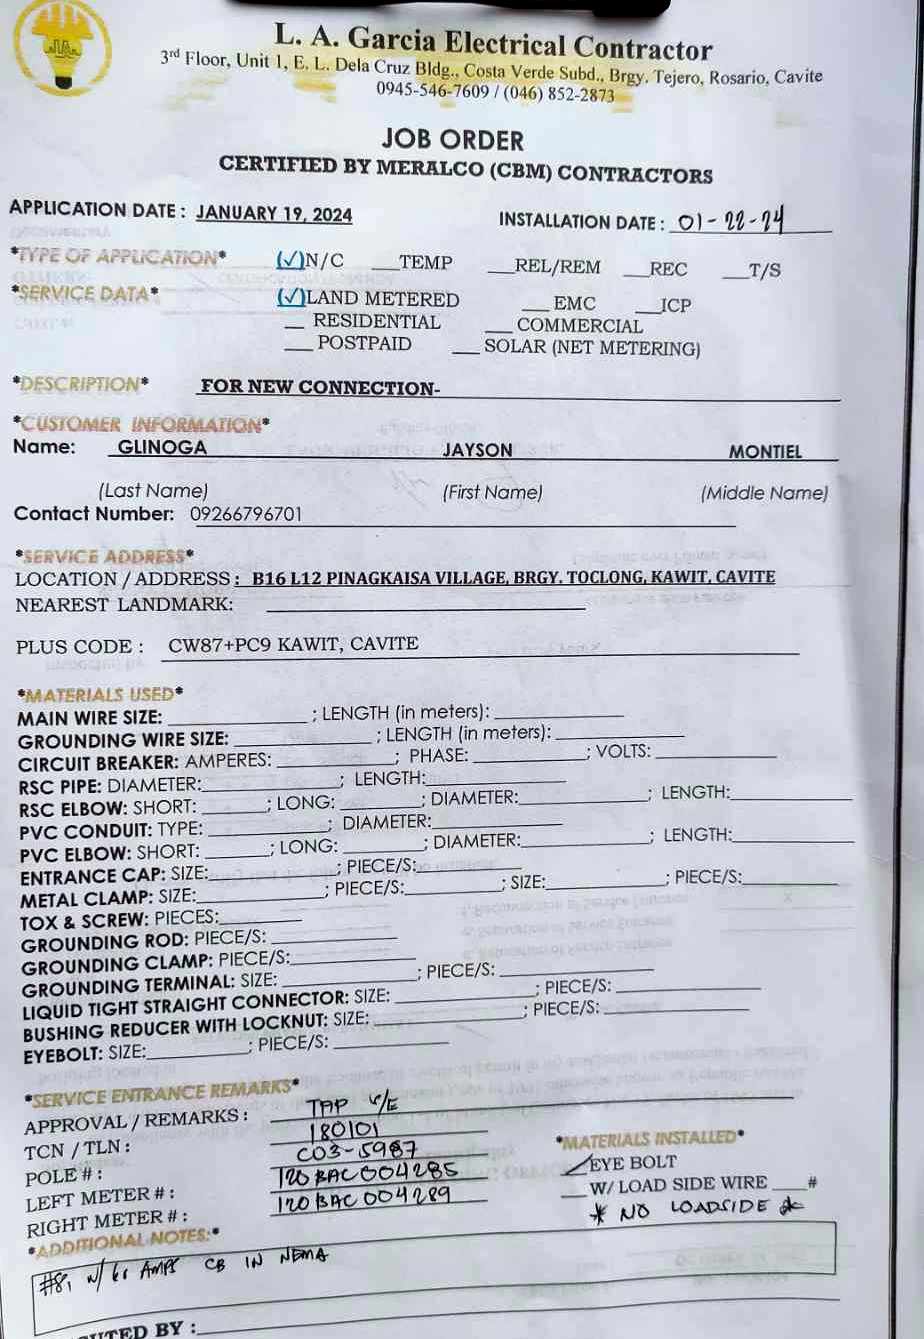 L. A. Garcia Electrical Contractor
3rd Floor, Unit 1, E. L. Dela Cruz Bldg., Costa Verde Subd., Brgy. Tejero, Rosario, Cavite
0945-546-7609 / (046) 852-2873
JOB ORDER
CERTIFIED BY MERALCO (CBM) CONTRACTORS
APPLICATION DATE : JANUARY 19, 2024 INSTALLATION DATE : 01-22-24
*TYPE OF APPLICATION* (✓)N/C ___TEMP ___REL/REM ___REC ___T/S
*SERVICE DATA* (✓)LAND METERED ___EMC ___ICP
___ RESIDENTIAL ___ COMMERCIAL
___ POSTPAID ___ SOLAR (NET METERING)
*DESCRIPTION* FOR NEW CONNECTION-
*CUSTOMER INFORMATION*
Name: GLINOGA JAYSON MONTIEL
(Last Name) (First Name) (Middle Name)
Contact Number: 09266796701
*SERVICE ADDRESS*
LOCATION / ADDRESS : B16 L12 PINAGKAISA VILLAGE, BRGY. TOCLONG, KAWIT, CAVITE
NEAREST LANDMARK: ___
PLUS CODE : CW87+PC9 KAWIT, CAVITE
*MATERIALS USED*
MAIN WIRE SIZE: ___ ; LENGTH (in meters): ___
GROUNDING WIRE SIZE: ___ ; LENGTH (in meters): ___
CIRCUIT BREAKER: AMPERES: ___; PHASE: ___; VOLTS: ___
RSC PIPE: DIAMETER:___; LENGTH:___
RSC ELBOW: SHORT: ___; LONG: ___; DIAMETER:___; LENGTH:___
PVC CONDUIT: TYPE: ___; DIAMETER:___
PVC ELBOW: SHORT: ___; LONG: ___; DIAMETER:___; LENGTH:___
ENTRANCE CAP: SIZE:___; PIECE/S:___
METAL CLAMP: SIZE:___; PIECE/S:___; SIZE:___; PIECE/S:___
TOX & SCREW: PIECES:___
GROUNDING ROD: PIECE/S: ___
GROUNDING CLAMP: PIECE/S:___
GROUNDING TERMINAL: SIZE: ___; PIECE/S: ___
LIQUID TIGHT STRAIGHT CONNECTOR: SIZE: ___; PIECE/S: ___
BUSHING REDUCER WITH LOCKNUT: SIZE: ___; PIECE/S: ___
EYEBOLT: SIZE:___; PIECE/S: ___
*SERVICE ENTRANCE REMARKS*
APPROVAL / REMARKS : TAP
TCN / TLN : 180101
POLE # : C03-5987
LEFT METER # : 120BAC004285
RIGHT METER # : 120BAC004289
*MATERIALS INSTALLED*
✓EYE BOLT
___W/ LOAD SIDE WIRE ___#
* NO LOADSIDE *
*ADDITIONAL NOTES:*
#8, w/ AMPS CB IN NEMA
BY :